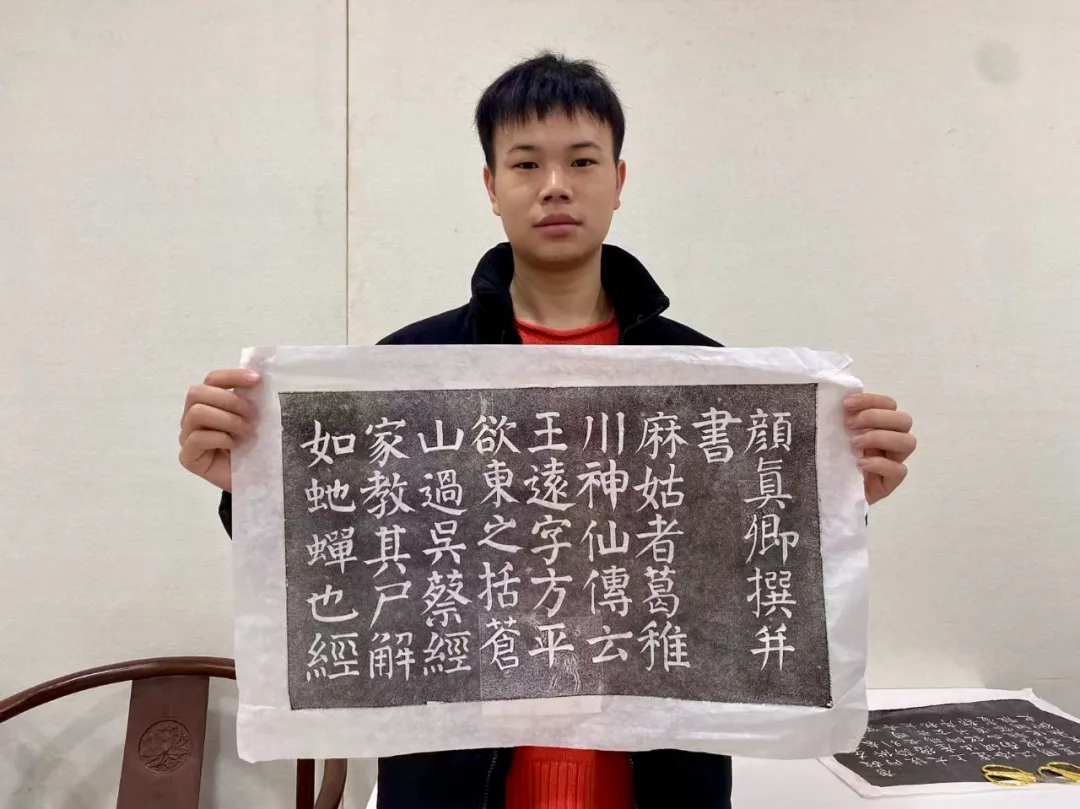 顔眞卿撰并
書
麻姑者葛稚
川神仙傳云
王遠字方平
欲東之括蒼
山過吳蔡經
家教其尸解
如虵蟬也經